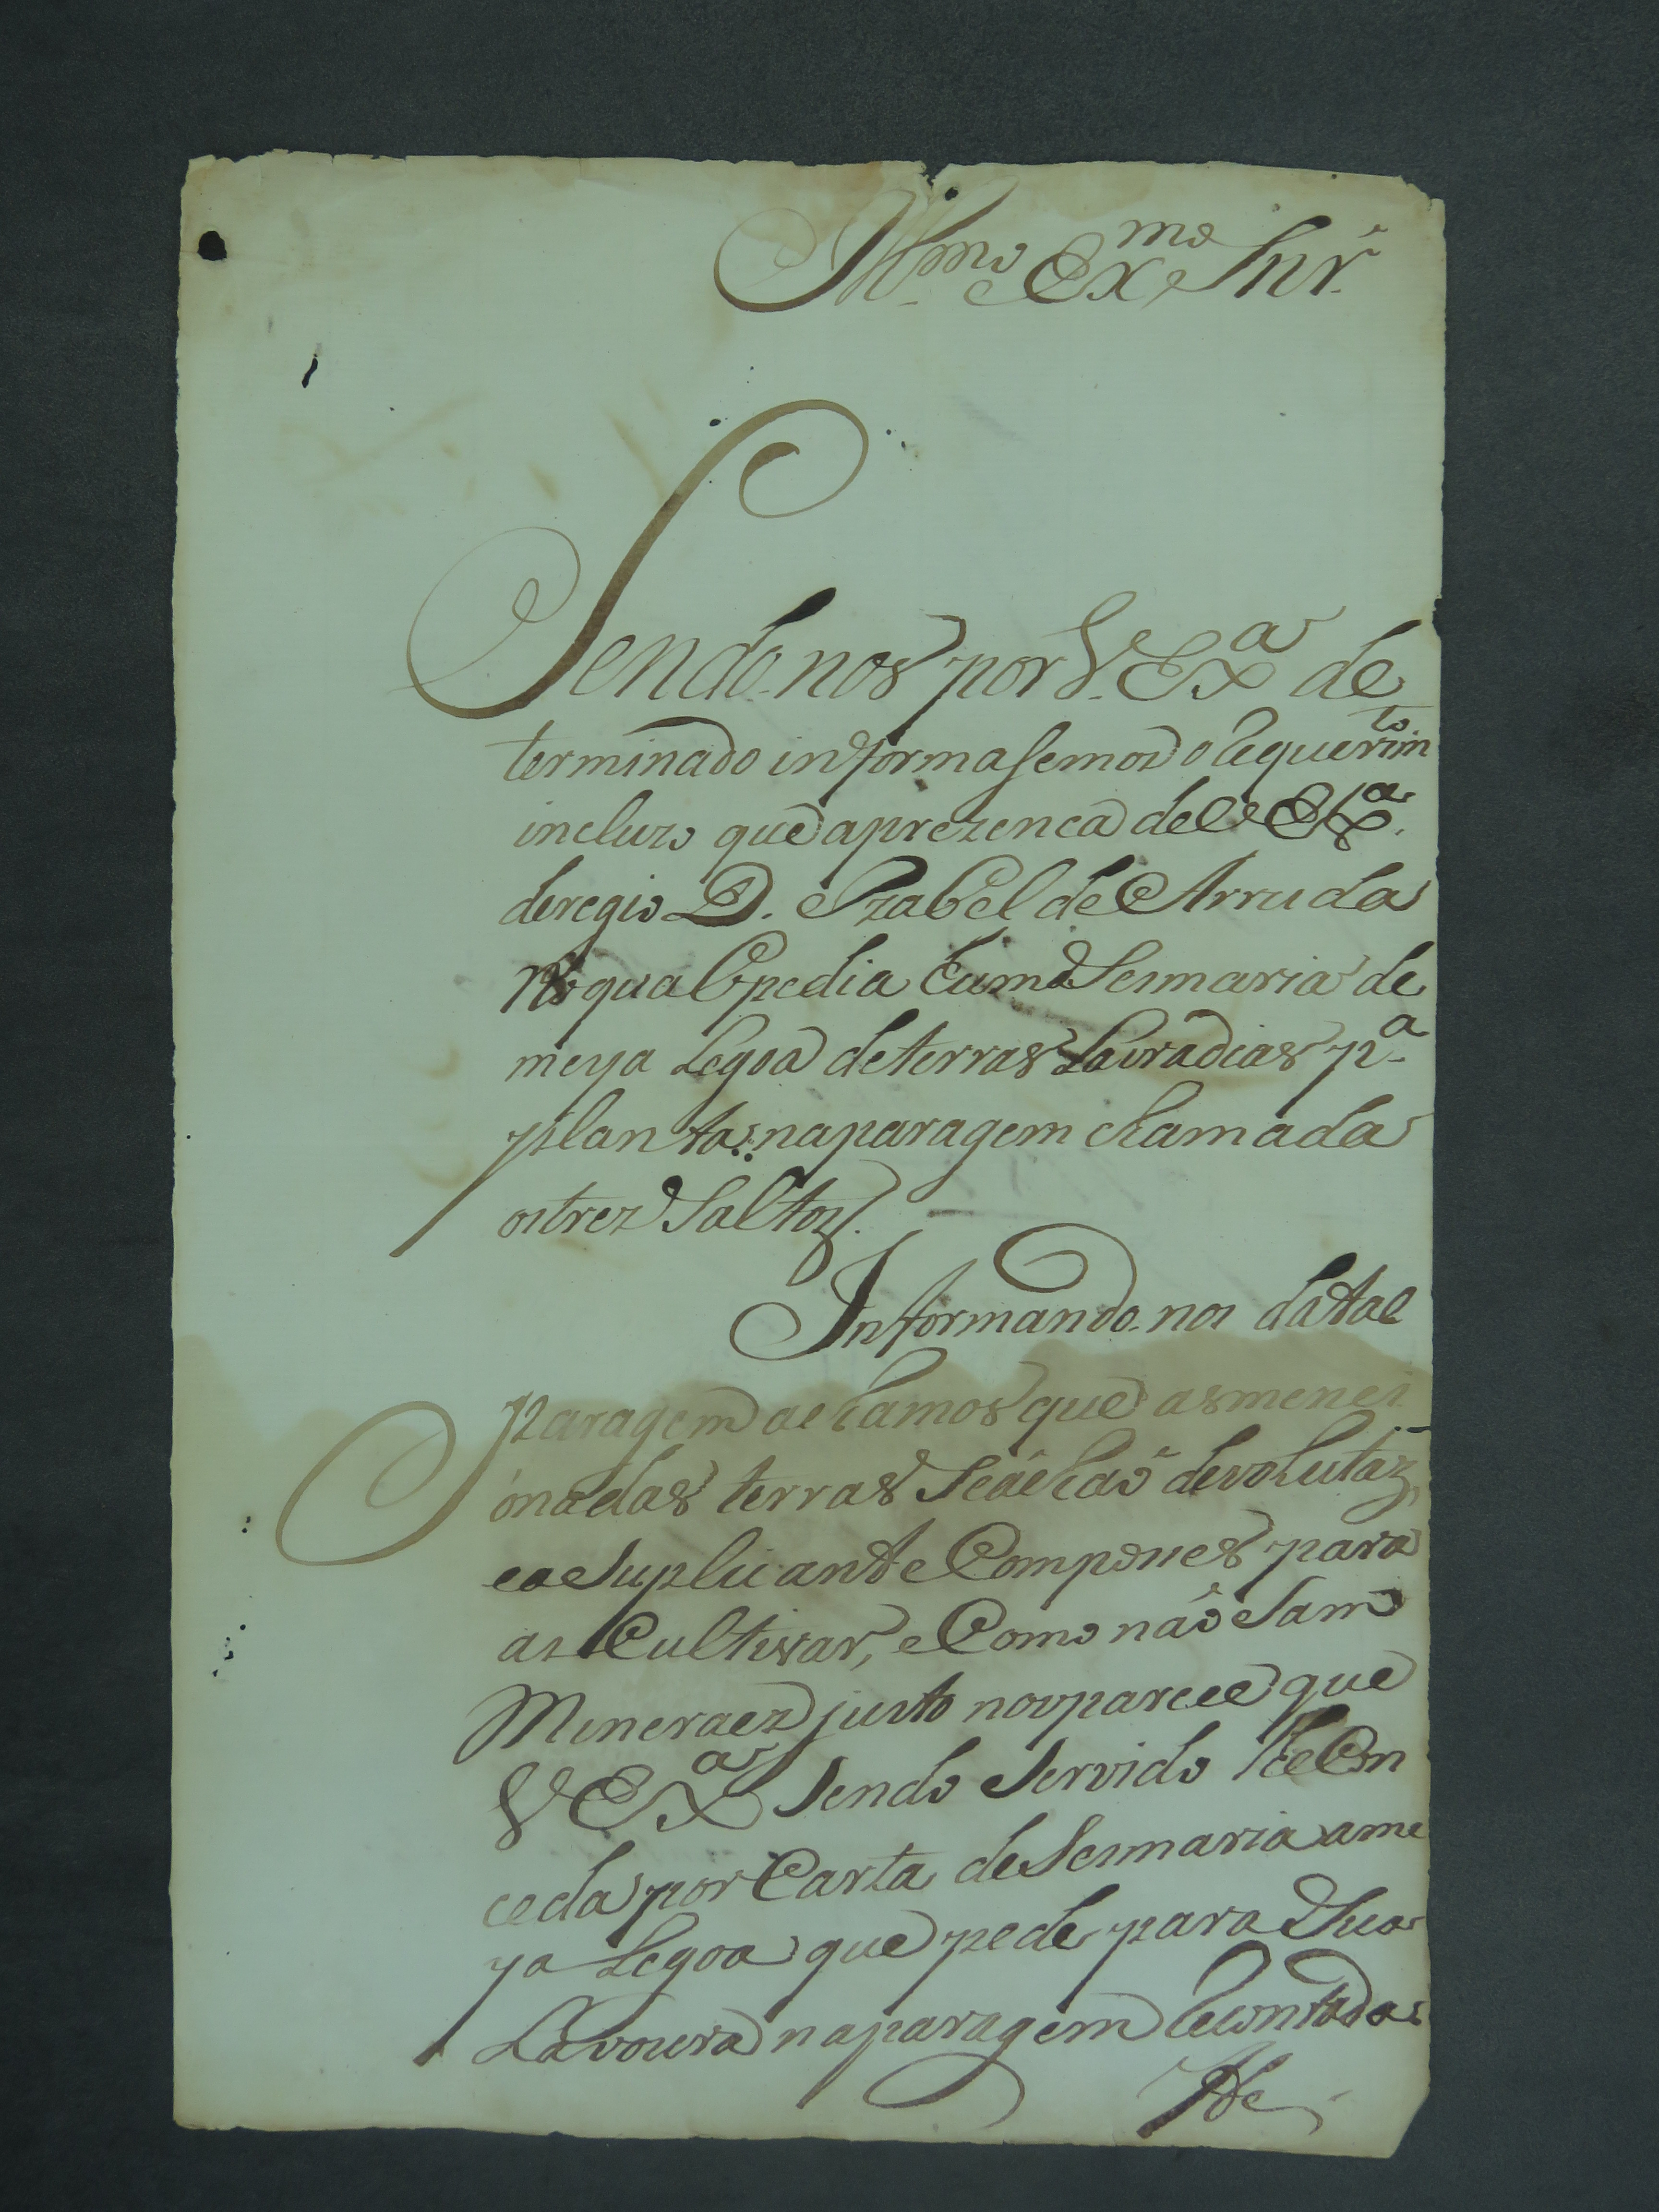 Illmo e Exmo Snr
Sendo-nos por V. Exa de
terminado informasemos o Requerimto
incluzo que aprezenca de V Exa.
deregio D. Izabel de Arruda
No qual pedia huma Sesmaria de
meya Legoa de terras Lavradias pa
plantas na paragem chamada
os trez Saltos.
Informando-nos da tal
paragem achamos que as menci
onadas terras Se áchaõ devolutaz,
e a Suplicante Compónes para
as Cultivar, e Como náo Sam
Mineraez justo nos parece que
V Exa Sendo Servido lhe Con
ceda por Carta de Sesmaria a me
ya Legoa que pede para Sua
Lavoura na paragem Recontada
He